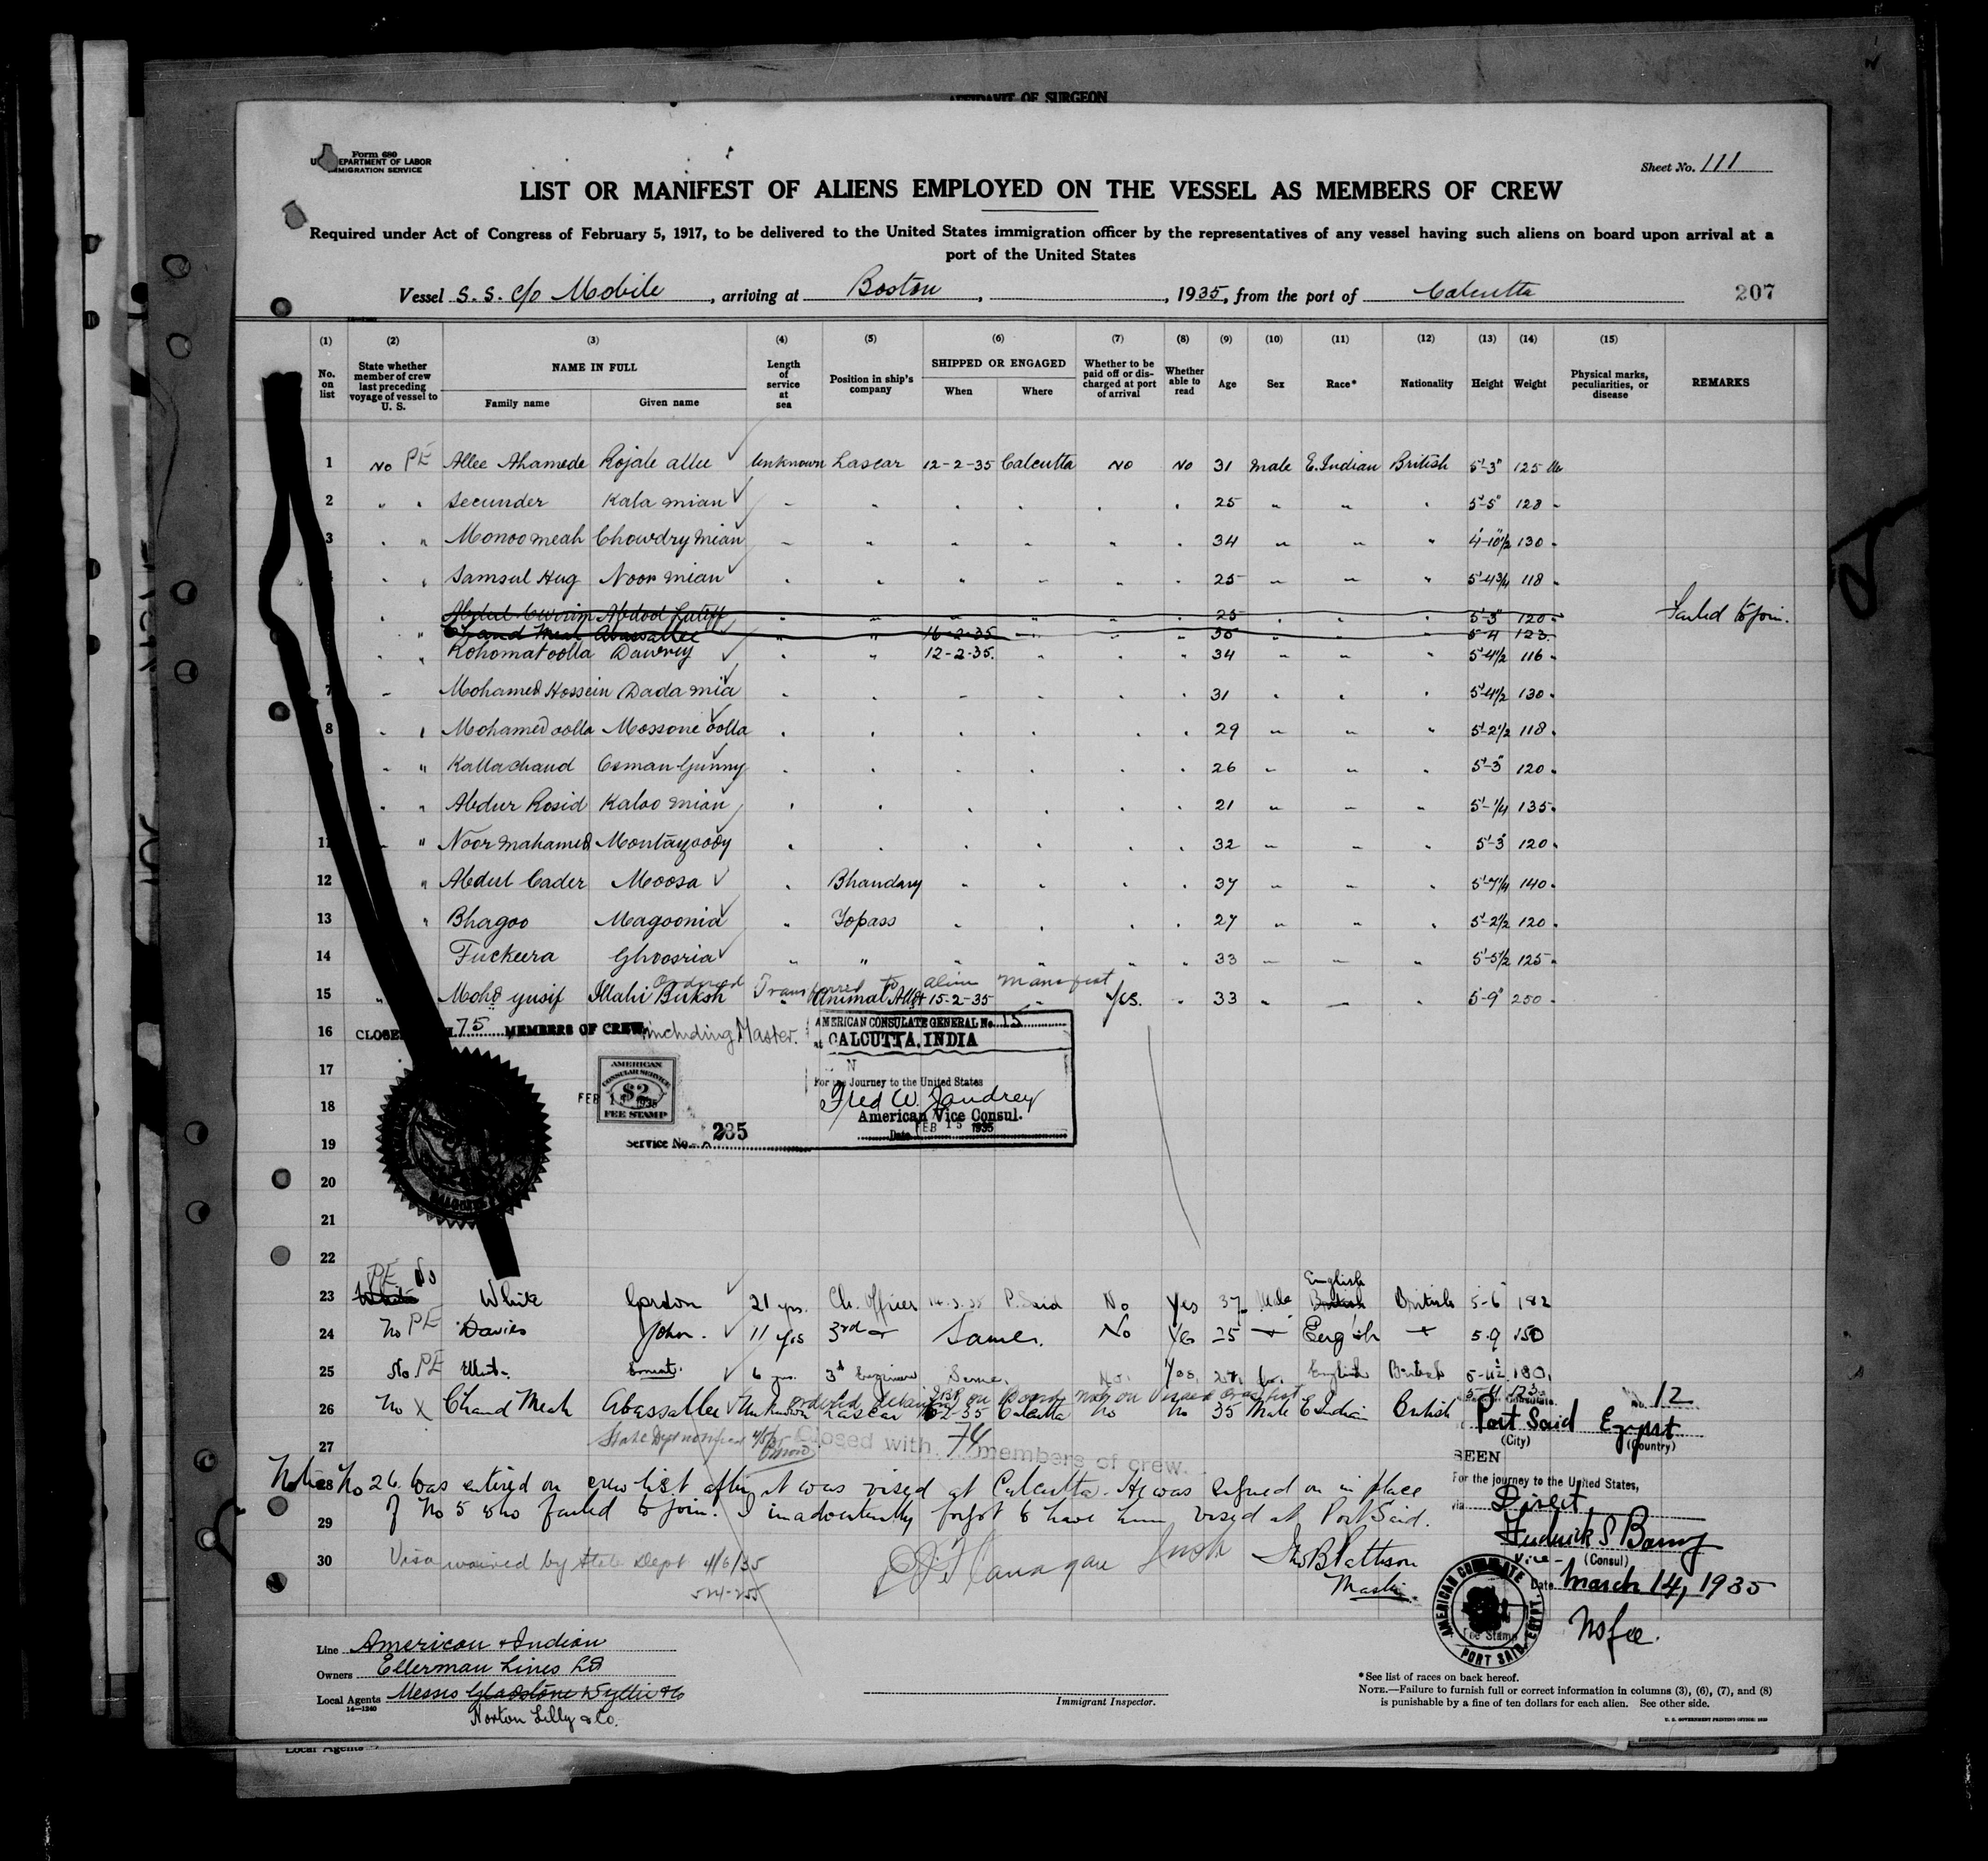 AFFIDAVIT OF SURGEON
Form 680
U. S. DEPARTMENT OF LABOR
IMMIGRATION SERVICE
Sheet No. 111
LIST OR MANIFEST OF ALIENS EMPLOYED ON THE VESSEL AS MEMBERS OF CREW
Required under Act of Congress of February 5, 1917, to be delivered to the United States immigration officer by the representatives of any vessel having such aliens on board upon arrival at a
port of the United States
Vessel S. S. C/o Mobile, arriving at Boston, 1935, from the port of Calcutta 207
(1) (2) (3) (4) (5) (6) (7) (8) (9) (10) (11) (12) (13) (14) (15)
No. on list State whether member of crew last preceding voyage of vessel to U. S. NAME IN FULL Family name Given name Length of service at sea Position in ship's company SHIPPED OR ENGAGED When Where Whether to be paid off or discharged at port of arrival Whether able to read Age Sex Race* Nationality Height Weight Physical marks, peculiarities, or disease REMARKS
1 No PE Allee Ahamede Rojale allee Unknown Lascar 12-2-35 Calcutta No No 31 Male E.Indian British 5'-3" 125 lbs
2 " " Secunder Kala mian 25 5'-5" 128
3 " " Monoo meah Chowdry mian 34 4'-10 1/2 130
Samsul Hug Noor mian 25 5'-4 3/4 118
Abdool Luteff 25 5'-3" 120 Failed to join.
Chand Meah Abassallee 16-2-35 35 5-4 123
Kohomatoolla Dawrey 12-2-35. 34 5'-4 1/2 116
7 Mohamed Hossein Dada mia 31 5'-4 1/2 130
8 Mohamed oolla Mossone oolla 29 5'-2 1/2 118
Kallachand Osman Gunny 26 5'-3" 120
Abdur Rosid Kaloo mian 21 5'-1/4 135
11 Noor mahamed 32 5'-3 120
12 Abdul Cader Moosa Bhandary 37 5'-7 1/4 140
13 Bhagoo Magoonia Topass 27 5'-2 1/2 120
14 Fuckeera Ghoosria " 33 5'-5 1/2 125
Transferred to alien manifest
15 Mohd yusif Illahi Buksh Animal Attdt 15-2-35 Yes. 33 5'-9" 250
16 CLOSED 75 MEMBERS OF CREW including Master.
AMERICAN CONSULATE GENERAL No. 15
at CALCUTTA, INDIA
17
For the Journey to the United States
AMERICAN CONSULAR SERVICE $2 FEE STAMP
FEB 15 1935
18 Fred W. Jandrey
American Vice Consul.
Date FEB 15 1935
Service No. 235
19
20
21
22
23 PE No White Gordon 21 yrs. Ch. Officer P. Said No Yes 37 Male English British 5-6 182
24 No PE Davies John. 11 yrs 3rd Same. No Yes 25 English 5-9 150
25 No PE 6 yrs. 3rd Engineer Same. No. Yes. 27 English British 180
26 No X Chand Meah Abassallee Unknown Lascar Calcutta No No 35 Male E Indian British 5-4 123
27 Closed with 74 members of crew.
No. 12
Port Said Egypt
(City) (Country)
SEEN
For the journey to the United States,
via Direct
28 Notice No 26 was entered on crew list after it was vised at Calcutta. He was signed on in place
29 of No 5 who failed to join. I inadvertently forgot to have him vised at Port Said.
30 Visa waived by State Dept 4/6/35
Jno B Pattison
Master.
Vice- (Consul)
Date March 14, 1935
AMERICAN CONSULATE PORT SAID, EGYPT.
Fee Stamp
No fee.
Line American & Indian
Owners Ellerman Lines Ltd
Local Agents Messrs Gladstone Wyllie & Co
16—1240
Norton Lilly & Co.
Immigrant Inspector.
*See list of races on back hereof.
NOTE.—Failure to furnish full or correct information in columns (3), (6), (7), and (8)
is punishable by a fine of ten dollars for each alien. See other side.
U. S. GOVERNMENT PRINTING OFFICE
Local Agents